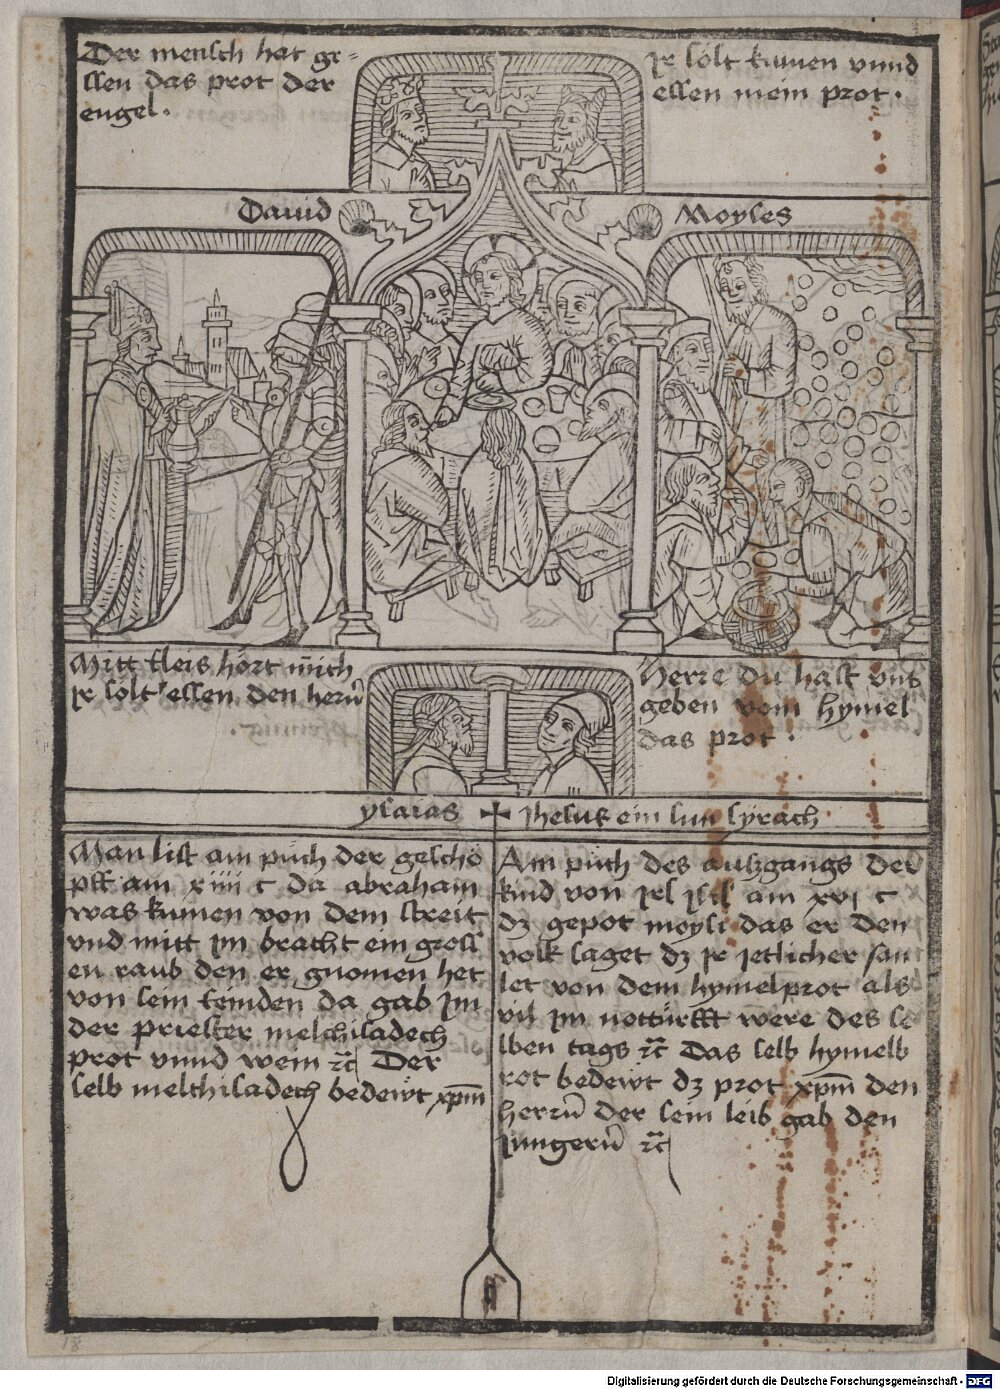 Der mensch hat ge-
ssen das prot der
engel.
Ir sölt kumen vnnd
essen mein prot.
Dauid
Moyses
Mitt fleis hört mich
Ir sölt essen den herñ
Herre du hast vns
geben vom hymel
das prot.
ysaias
Jhesus ein sun syrach
Man list am půch der geschö
pff am xiiii c da abraham
was kumen von dem streit
vnd mitt im bracht ein gross
en raub den er gnomen het
von sein feinden da gab im
der priester melchisadech
prot vnnd wein ꝛc Der
selb melchisadech bedewt xp̄m
Am půch des auszgangs der
kind von isrl am xvj c
dz gepot moysi das er dem
volk saget dz ir jetlicher sam
let von dem hymelprot als
vil im nottürfft were des se
lben tags ꝛc Das selb hymelb
rot bedewt dz prot xp̄m den
herrñ der sein leib gab den
jungerñ ꝛc
18
Digitalisierung gefördert durch die Deutsche Forschungsgemeinschaft - DFG